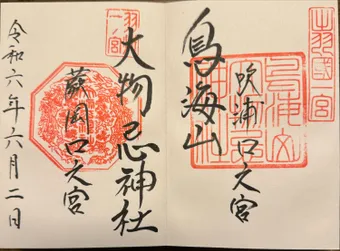 出羽國一宮
鳥海山
吹浦口之宮
羽一宮
大物忌神社
蕨岡口之宮
令和六年六月二日